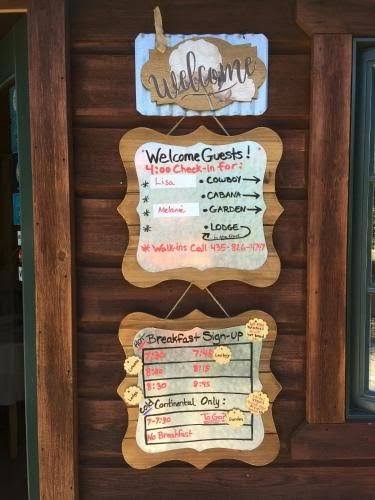 welcome
Welcome Guests!
4:00 Check-in for:
* Lisa • COWBOY →
* • CABANA →
* Melanie • GARDEN →
* • LODGE
* Walk-ins Call 435-826-4747
Hot Breakfast Sign-up
7:30 7:45
8:00 8:15
8:30 8:45
Cold Continental Only:
7-7:30 To Go? Garden
No Breakfast